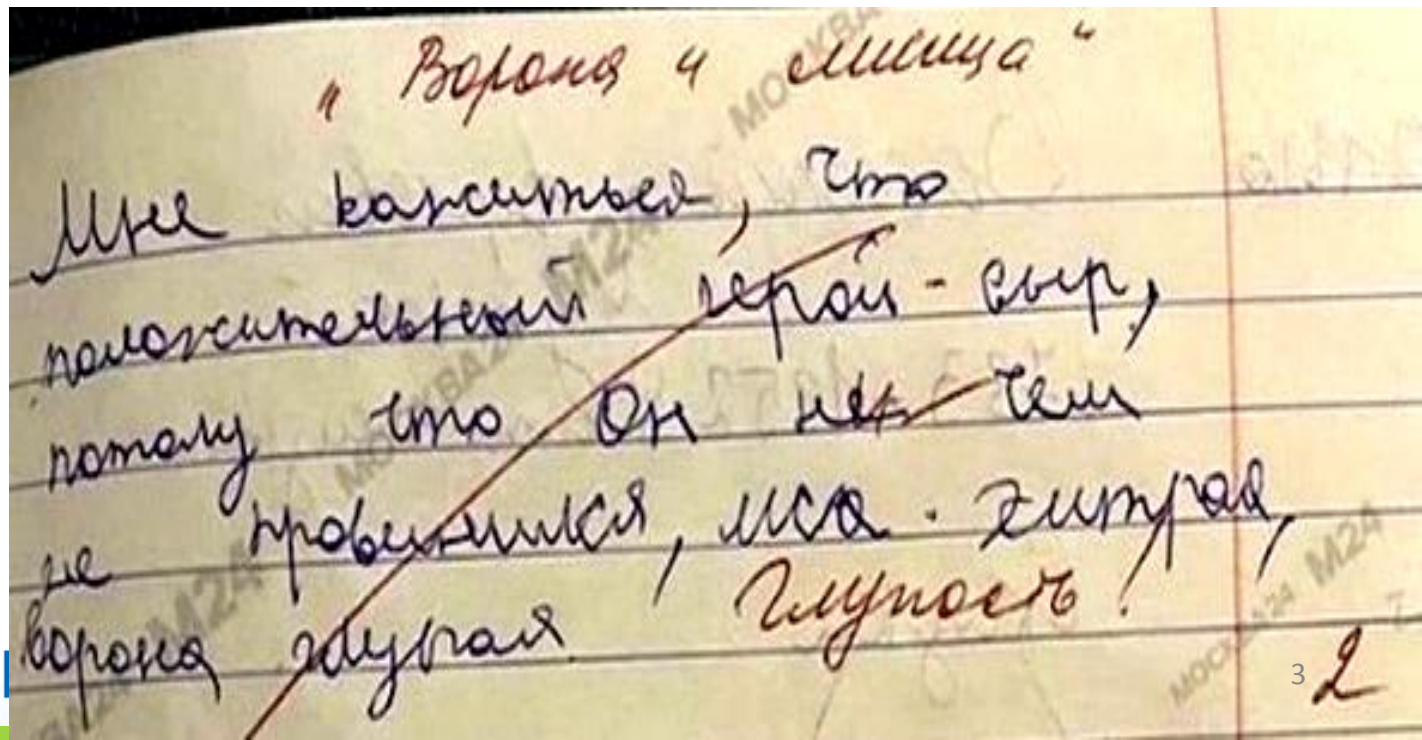 "Ворона и лисица"
Мне кажиться, что
положительный герой - сыр,
потому что он не чем
не провинился, лиса - хитрая,
ворона глупая Глупость!
3 2
МОСКВА24 М24